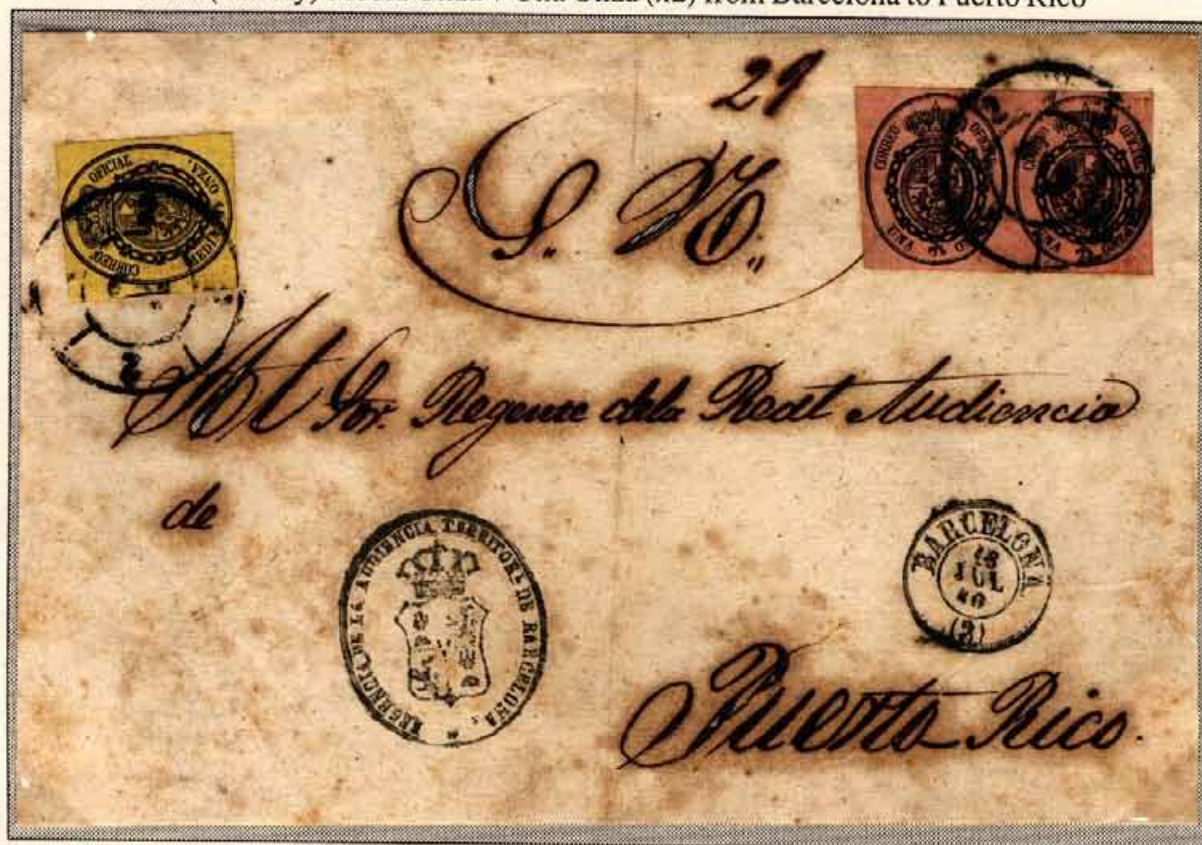 Media Onza + Una Onza (x2) from Barcelona to Puerto Rico
29
S. N.
CORREO OFICIAL MEDIA ONZA
CORREO OFICIAL UNA
CORREO OFICIAL
Al Sor. Regente dela Real Audiencia
de
REGENCIA DE LA AUDIENCIA TERRITORL. DE BARCELONA.
BARCELONA
JUL
(3)
Puerto Rico.